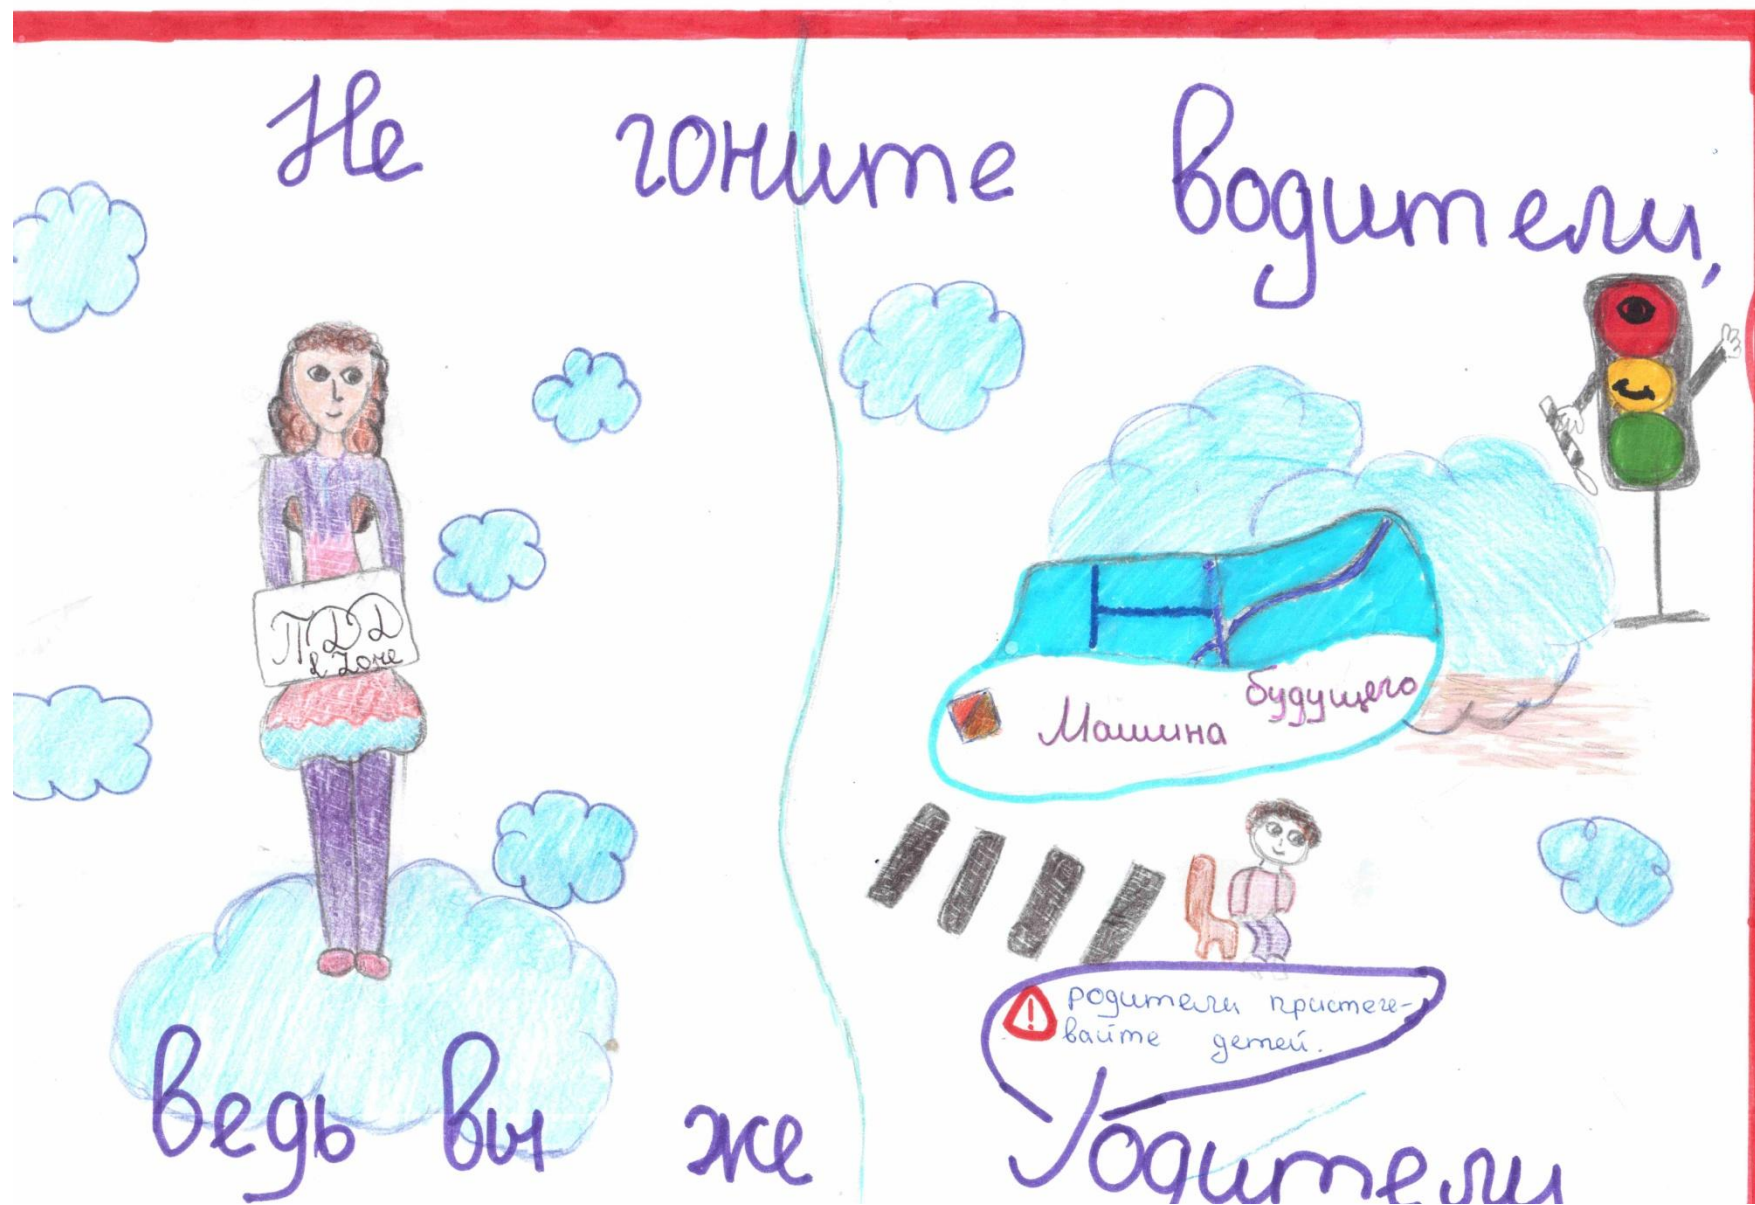 Не гоните водители,
ПДД
в Zоне
Машина будущего
!
родители пристеге-
вайте детей.
ведь вы же родители